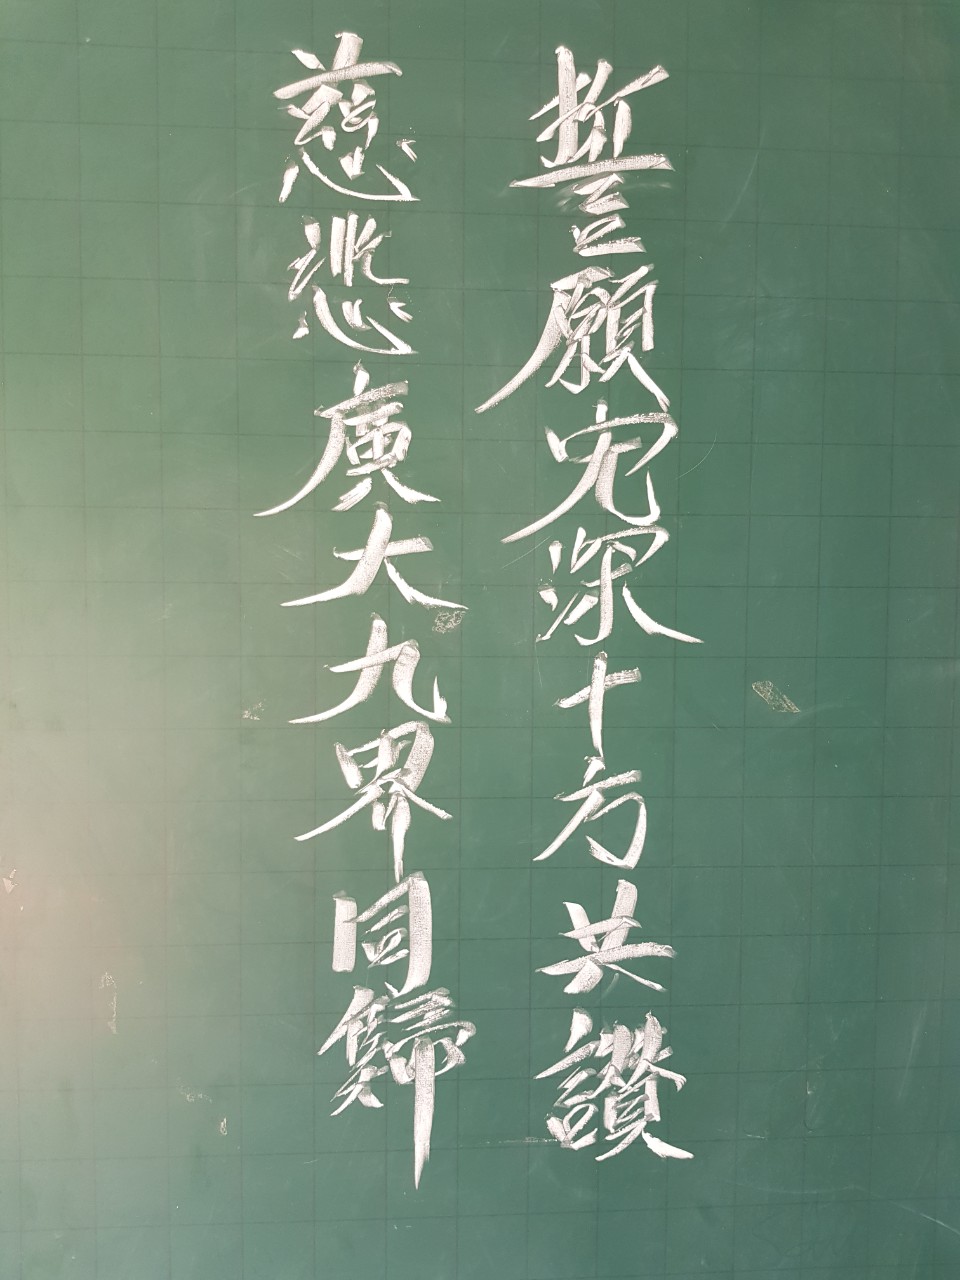 誓願宏深十方共讚
慈悲廣大九界同歸